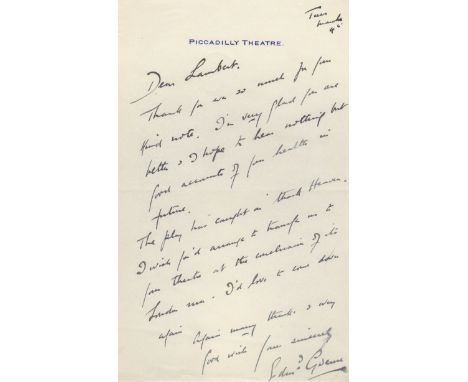 Tues
March
4th
PICCADILLY THEATRE.
Dear Lambert.
Thank you ever so much for your
kind note. I'm very glad you are
better & I hope to hear nothing but
good accounts of your health in
future.
The play has "caught on" thank Heaven.
I wish you'd arrange to transfer us to
your theatre at the conclusion of its
London run. I'd love to come down
again Again many thanks & every
good wish yours sincerely
Edmd Gwenn